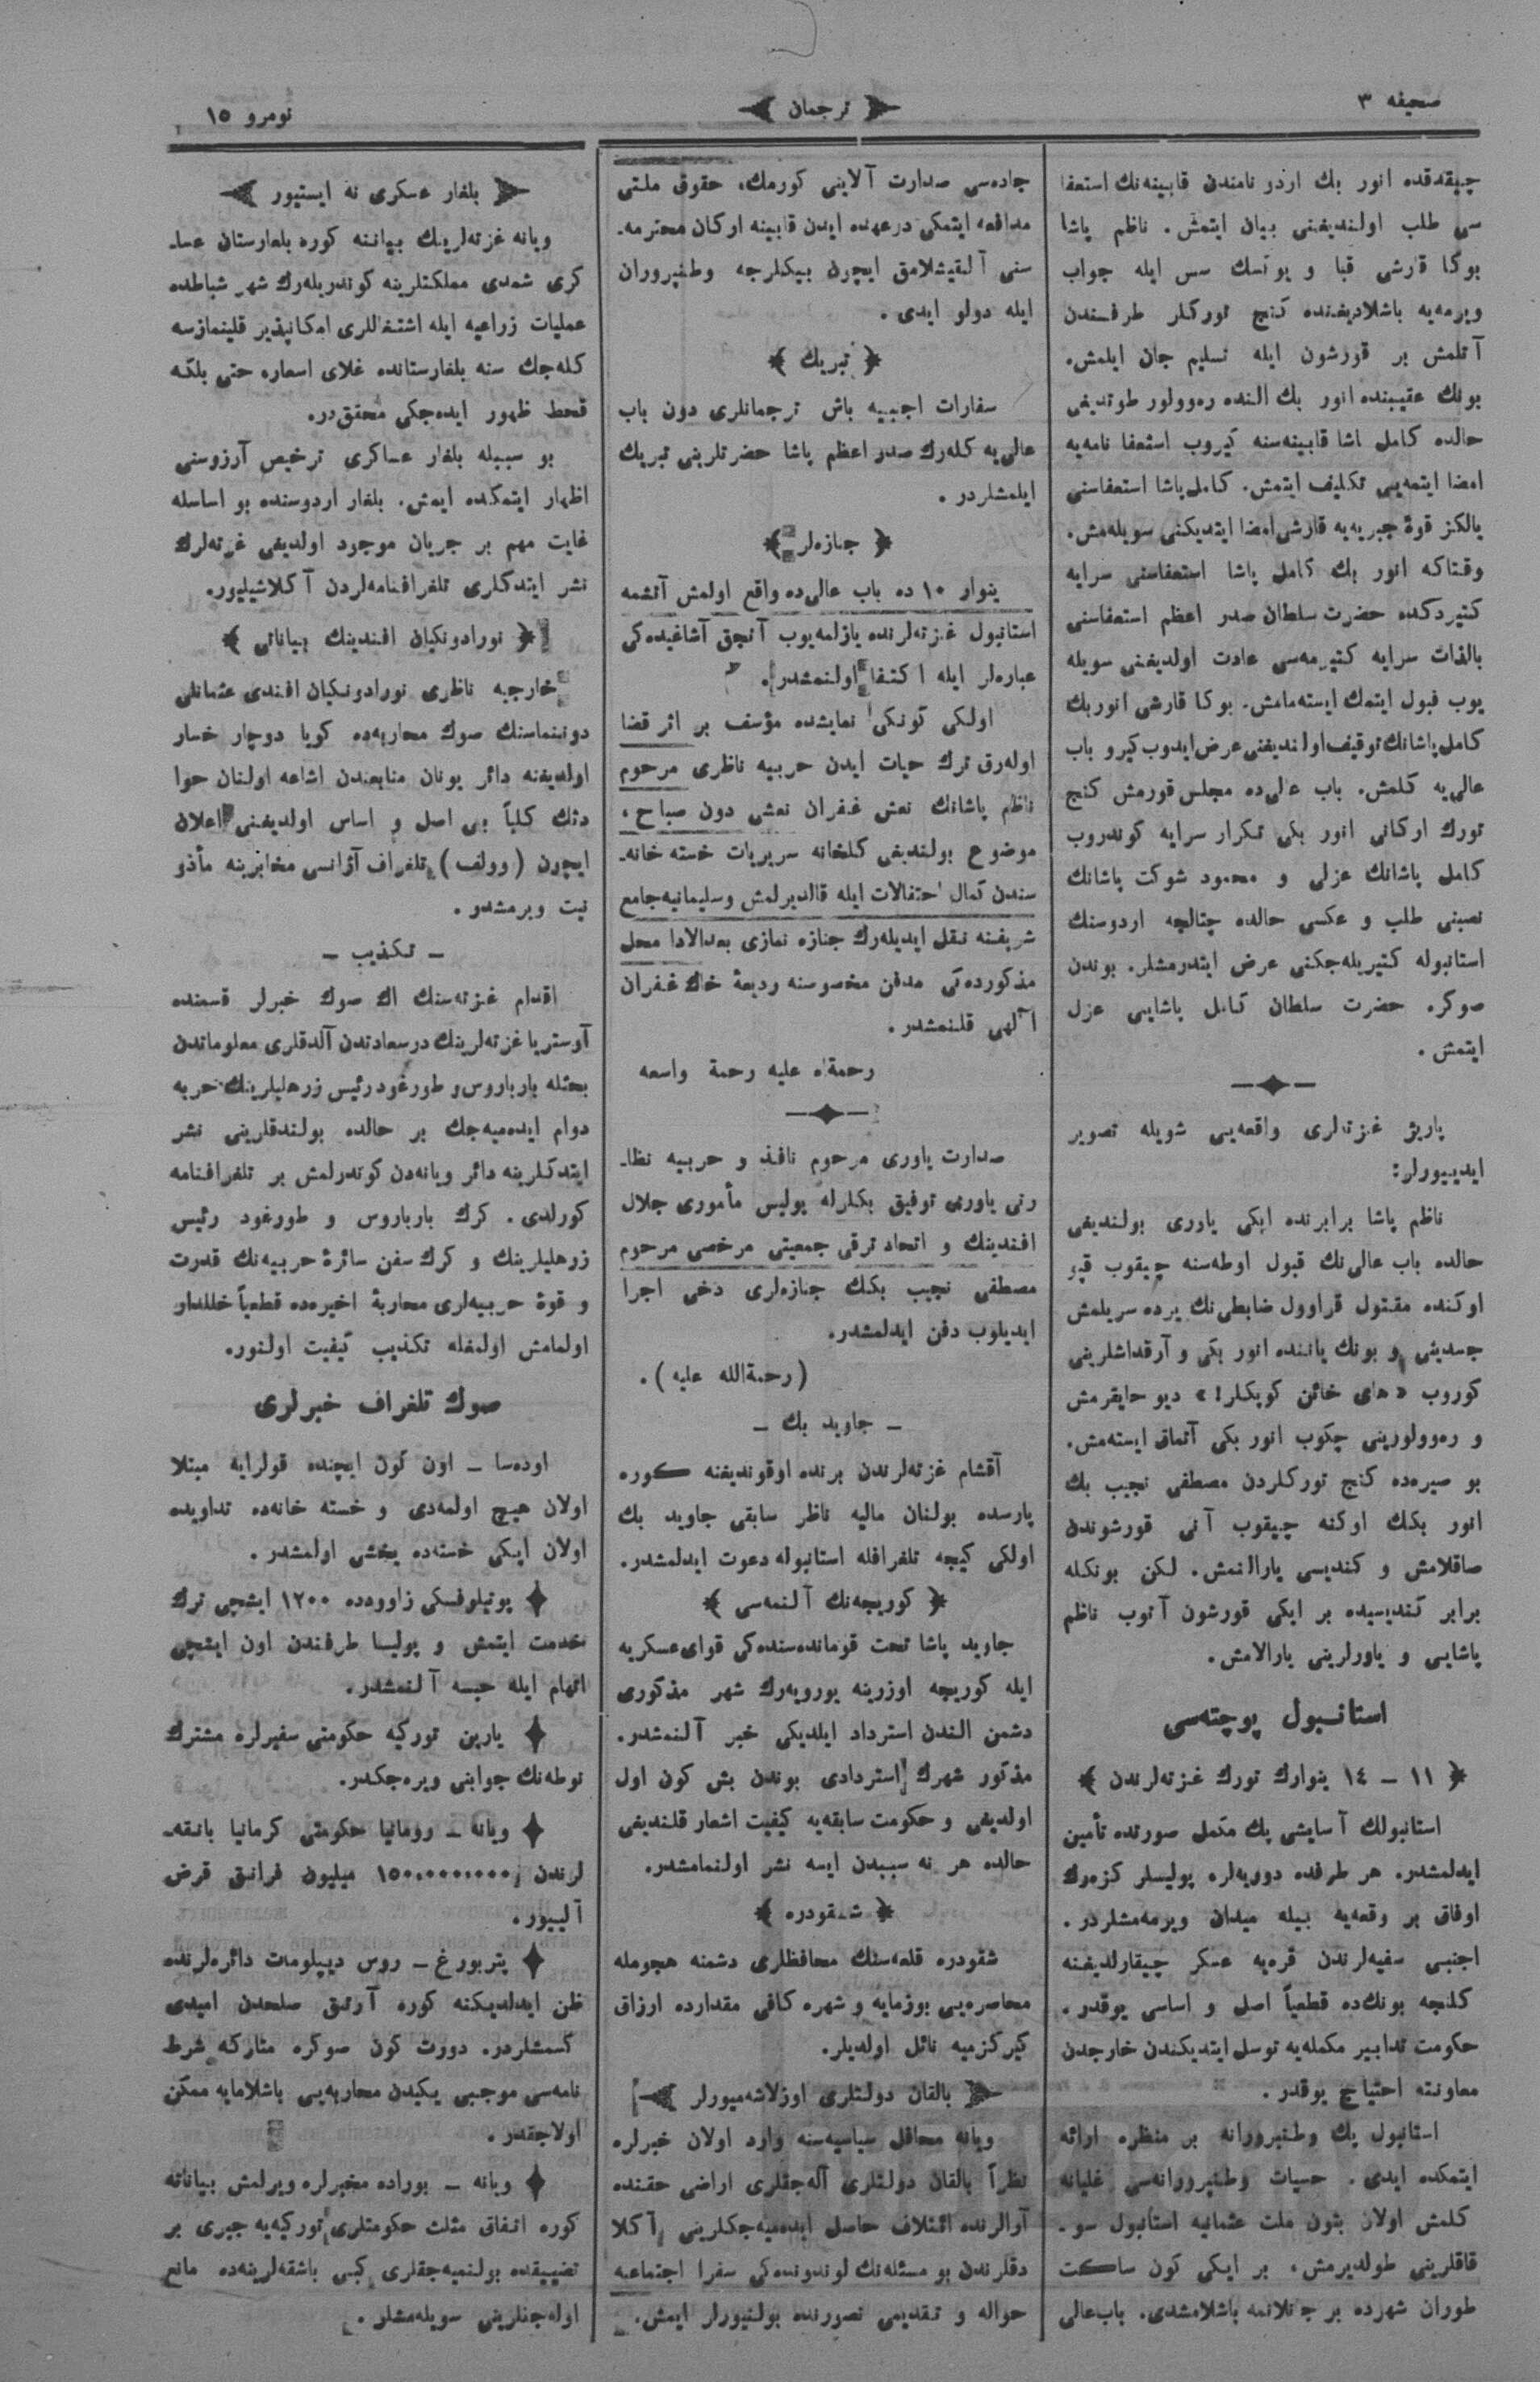 صحيفه ٣
ترجمان
نومرو ١٥
چيقه‌قده انور بك اردو نامندن قابينه‌نك استعفا
سى طلب اولنديغنى بيان ايتمش. ناظم پاشا
بوكا قارشى قبا و يوكسك سس ايله جواب
ويرمه‌يه باشلاديغنده كنج توركلر طرفندن
آتلمش بر قورشون ايله تسليم جان ايلمش.
بونك عقيبنده انور بك النده ره‌وولور طوتديغى
حالده كامل پاشا قابينه‌سنه كيروب استعفا نامه‌يه
امضا ايتمه‌يى تكليف ايتمش. كامل پاشا استعفاسنى
يالكز قوۀ جبريه‌يه قارشى امضا ايتديكنى سويله‌مش.
وقتاكه انور بك كامل پاشا استعفاسنى سرايه
كتيردكده حضرت سلطان صدر اعظم استعفاسنى
بالذات سرايه كتيرمه‌سى عادت اولديغنى سويله
يوب قبول ايتمك ايسته‌مامش. بوكا قارشى انور بك
كامل پاشانك توقيف اولنديغنى عرض ايدوب كيرو باب
عالى‌يه كلمش. باب عالى‌ده مجلس قورمش كنج
تورك اركانى انور بكى تكرار سرايه كوندروب
كامل پاشانك عزلى و محمود شوكت پاشانك
نصبنى طلب و عكسى حالده چتالجه اردوسنك
استانبوله كتيريله‌جكنى عرض ايتدرمشلر. بوندن
صوكره حضرت سلطان كامل پاشايى عزل
ايتمش.
پاريژ غزته‌لرى واقعه‌يى شويله تصوير
ايدييورلر:
ناظم پاشا برابرنده ايكى ياورى بولنديغى
حالده باب عالى‌نك قبول اوطه‌سنه چيقوب قپو
اوكنده مقتول قراوول ضابطى‌نك يرده سريلمش
جسدينى و بونك ياننده انور بكى و آرقداشلرينى
كوروب «هاى خائن كوپكلر!» ديو حايقرمش
و ره‌وولورينى چكوب انور بكى آتماق ايسته‌مش.
بو صيره‌ده كنج توركلردن مصطفى نجيب بك
انور بكك اوكنه چيقوب آنى قورشوندن
صاقلامش و كنديسى يارالنمش. لكن بونكله
برابر كنديسيده بر ايكى قورشون آتوب ناظم
پاشايى و ياورلرينى يارالامش.
استانبول پوچته‌سى
١١ – ١٤ ينوارك تورك غزته‌لرندن
استانبولك آسايشى پك مكمل صورتده تأمين
ايدلمشدر. هر طرفده دوريه‌لره پوليسلر كزه‌رك
اوفاق بر وقعه‌يه بيله ميدان ويرمه‌مشلردر.
اجنبى سفينه‌لرندن قره‌يه عسكر چيقارلديغنه
كلنجه بونك‌ده قطعياً اصل و اساسى يوقدر.
حكومت تدابير مكمله‌يه توسل ايتديكندن خارجدن
معاونته احتياج يوقدر.
استانبول پك وطنپرورانه بر منظره ارائه
ايتمكده ايدى. حسيات وطنپرورانه‌سى غليانه
كلمش اولان بتون ملت عثمانيه استانبول سو-
قاقلرينى طولديرمش. بر ايكى كون ساكت
طوران شهرده بر جانلانمه باشلامشدى. باب عالى
جاده‌سى صدارت آلاينى كورمك، حقوق ملتى
مدافعه ايتمكى درعهده ايدن قابينه اركان محترمه-
سنى آلقيشلامق ايچون بيكلرجه وطنپروران
ايله دولو ايدى.
تبريك
سفارات اجنبيه باش ترجمانلرى دون باب
عالى‌يه كله‌رك صدر اعظم پاشا حضرتلرينى تبريك
ايلمشلردر.
جنازه‌لر
ينوار ١٠ ده باب عالى‌ده واقع اولمش آتشمه
استانبول غزته‌لرنده يازلمه‌يوب آنجق آشاغيده‌كى
عباره‌لر ايله اكتفا اولنمشدر.
اولكى كونكى نمايشده مؤسف بر اثر قضا
اوله‌رق ترك حيات ايدن حربيه ناظرى مرحوم
ناظم پاشانك نعش غفران نعشى دون صباح،
موضوع بولنديغى كلخانه سريريات خسته خانه-
سندن كمال احتفالات ايله قالديرلمش و سليمانيه جامع
شريفنه نقل ايديله‌رك جنازه نمازى بعدالادا محل
مذكورده‌كى مدفن مخصوصنه وديعۀ خاك غفران
آلهى قلنمشدر.
رحمة‌الله عليه رحمة واسعه
صدارت ياورى مرحوم نافذ و حربيه نظا-
رتى ياورى توفيق بكلرله پوليس مأمورى جلال
افندينك و اتحاد ترقى جمعيتى مرخصى مرحوم
مصطفى نجيب بكك جنازه‌لرى دخى اجرا
ايديلوب دفن ايدلمشدر.
(رحمة‌الله عليه).
– جاويد بك –
آقشام غزته‌لرندن برنده اوقونديغنه كوره
پارسده بولنان ماليه ناظر سابقى جاويد بك
اولكى كيجه تلغرافله استانبوله دعوت ايدلمشدر.
كوريجه‌نك آلنمه‌سى
جاويد پاشا تحت قومانده‌سنده‌كى قواى عسكريه
ايله كوريجه اوزرينه يورويه‌رك شهر مذكورى
دشمن الندن استرداد ايلديكى خبر آلنمشدر.
مذكور شهرك استردادى بوندن بش كون اول
اولديغى و حكومت سابقه‌يه كيفيت اشعار قلنديغى
حالده هر نه سببدن ايسه نشر اولنمامشدر.
شقودره
شقودره قلعه‌سنك محافظلرى دشمنه هجومله
محاصره‌يى بوزمايه و شهره كافى مقدارده ارزاق
كيركزميه نائل اولديلر.
بالقان دولتلرى اوزلاشه‌ميورلر
ويانه محافل سياسيه‌سنه وارد اولان خبرلره
نظراً بالقان دولتلرى آله‌جقلرى اراضى حقنده
آرالرنده ائتلاف حاصل ايده‌ميه‌جكلرينى آكلا
دقلرندن بو مسئله‌نك لوندونده‌كى سفرا اجتماعنه
حواله و تقديمى تصورنده بولنيورلر ايمش.
بلغار عسكرى نه ايستيور
ويانه غزته‌لرينك بياننه كوره بلغارستان عسا-
كرى شمدى مملكتلرينه كوندريله‌رك شهر شباطده
عمليات زراعيه ايله اشتغاللرى امكانپذير قلينمازسه
كله‌جك سنه بلغارستانده غلاى اسعاره حتى بلكه
قحط ظهور ايده‌جكى محقق‌در.
بو سببله بلغار عساكرى ترخيص آرزوسنى
اظهار ايتمكده ايمش. بلغار اردوسنده بو اساسله
غايت مهم بر جريان موجود اولديغى غزته‌لرك
نشر ايتدكلرى تلغرافنامه‌لردن آكلاشيليور.
نورادونكيان افندينك بياناتى
خارجيه ناظرى نورادونكيان افندى عثمانلى
دوننماسنك صوك محاربه‌ده كويا دوچار خسار
اولديغنه دائر يونان منابعندن اشاعه اولنان حوا
دثك كلياً بى اصل و اساس اولديغنى اعلان
ايچون (وولف) تلغراف آژانسى مخابرينه مأذو
نيت ويرمشدر.
– تكذيب –
اقدام غزته‌سنك اك صوك خبرلر قسمنده
آوستريا غزته‌لرينك درسعادتدن آلدقلرى معلوماتدن
بحثله بارباروس و طورغود رئيس زرهليلرينك حربه
دوام ايده‌ميه‌جك بر حالده بولندقلرينى نشر
ايتدكلرينه دائر ويانه‌دن كوندرلمش بر تلغرافنامه
كورلدى. كرك بارباروس و طورغود رئيس
زرهليلرينك و كرك سفن سائرۀ حربيه‌نك قدرت
و قوۀ حربيه‌لرى محاربۀ اخيره‌ده قطعياً خللدار
اولمامش اولمغله تكذيب كيفيت اولنور.
صوك تلغراف خبرلرى
اوده‌سا – اون كون ايچنده قولرايه مبتلا
اولان هيچ اولمه‌دى و خسته خانه‌ده تداويده
اولان ايكى خسته‌ده يخشى اولمشدر.
پوتيلوفسكى زاووده‌ده ١٢٠٠ ايشچى ترك
خدمت ايتمش و پوليسا طرفندن اون ايشچى
اتهام ايله حبسه آلنمشدر.
يارين توركيه حكومتى سفيرلره مشترك
نوطه‌نك جوابنى ويره‌جكدر.
ويانه – رومانيا حكومتى كرمانيا بانقه-
لرندن ١٥٠،٠٠٠،٠٠٠ ميليون فرانق قرض
آلييور.
پتربورغ – روس ديپلومات دائره‌لرنده
ظن ايدلديكنه كوره آرتق صلحدن اميدى
كسمشلردر. دورت كون صوكره متاركه شرط
نامه‌سى موجبى يكيدن محاربه‌يى باشلامايه ممكن
اولاجقدر.
ويانه – بوراده مخبرلره ويرلمش بياناته
كوره اتفاق مثلث حكومتلرى توركيه‌يه جبرى بر
تضييقده بولنميه‌جقلرى كبى باشقه‌لرينه‌ده مانع
اوله‌جقلرينى سويله‌مشلر.